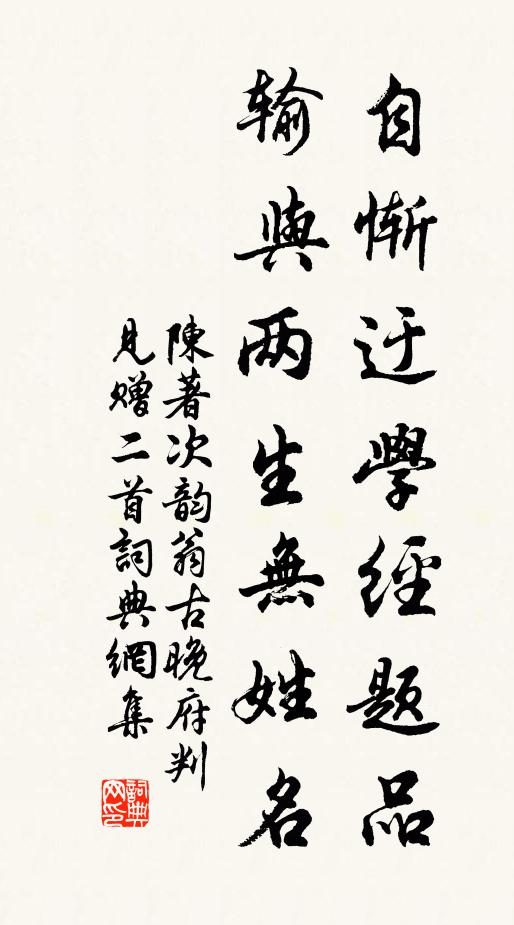 自惭迂學經题品
输與两生無姓名
陳著次韵翁古晚府判
見赠二首詞典網集
詞典网印